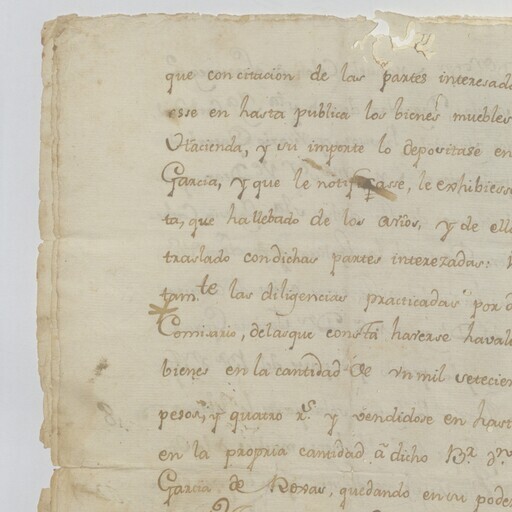 que con citacion de las partes interesad
esse en hasta publica los bienes muebles
Hacienda, y su importe lo depositase en
Garcia, y que le notificasse, le exhibiess
ta, que ha llebado de los años, y de ell
traslado con dichas partes interezadas:
tam.te las diligencias practicadas por d
Comisario, de las que consta haverse haval
bienes en la cantidad de vn mil setecien
pesos, y quatro r.s y vendidose en hast
en la propria cantidad á dicho Br.
Garcia de Roxas, quedando en su pode